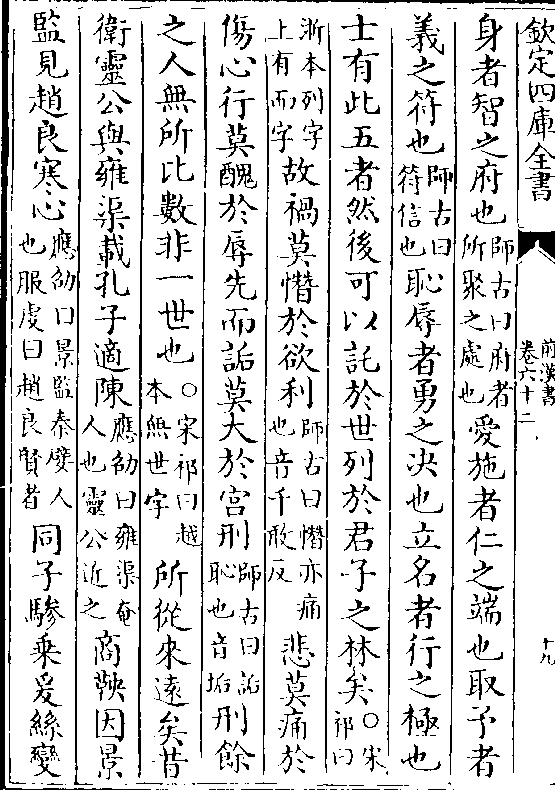 欽定四庫全書
前漢書
卷六十二
十九
身者智之府也師古曰府者所聚之處也愛施者仁之端也取予者
義之符也師古曰符信也恥辱者勇之决也立名者行之極也
士有此五者然後可以託於世列於君子之林矣○宋祁曰
浙本列字上有而字故禍莫憯於欲利師古曰憯亦痛也音千敢反悲莫痛於
傷心行莫醜於辱先而詬莫大於宫刑師古曰詬恥也音垢刑餘
之人無所比數非一世也○宋祁曰越本無世字所從來遠矣昔
衛靈公與雍渠載孔子適陳應劭曰雍渠奄人也靈公近之商鞅因景
監見趙良寒心應劭曰景監秦嬖人也服虔曰趙良賢者同子驂乘爰絲變